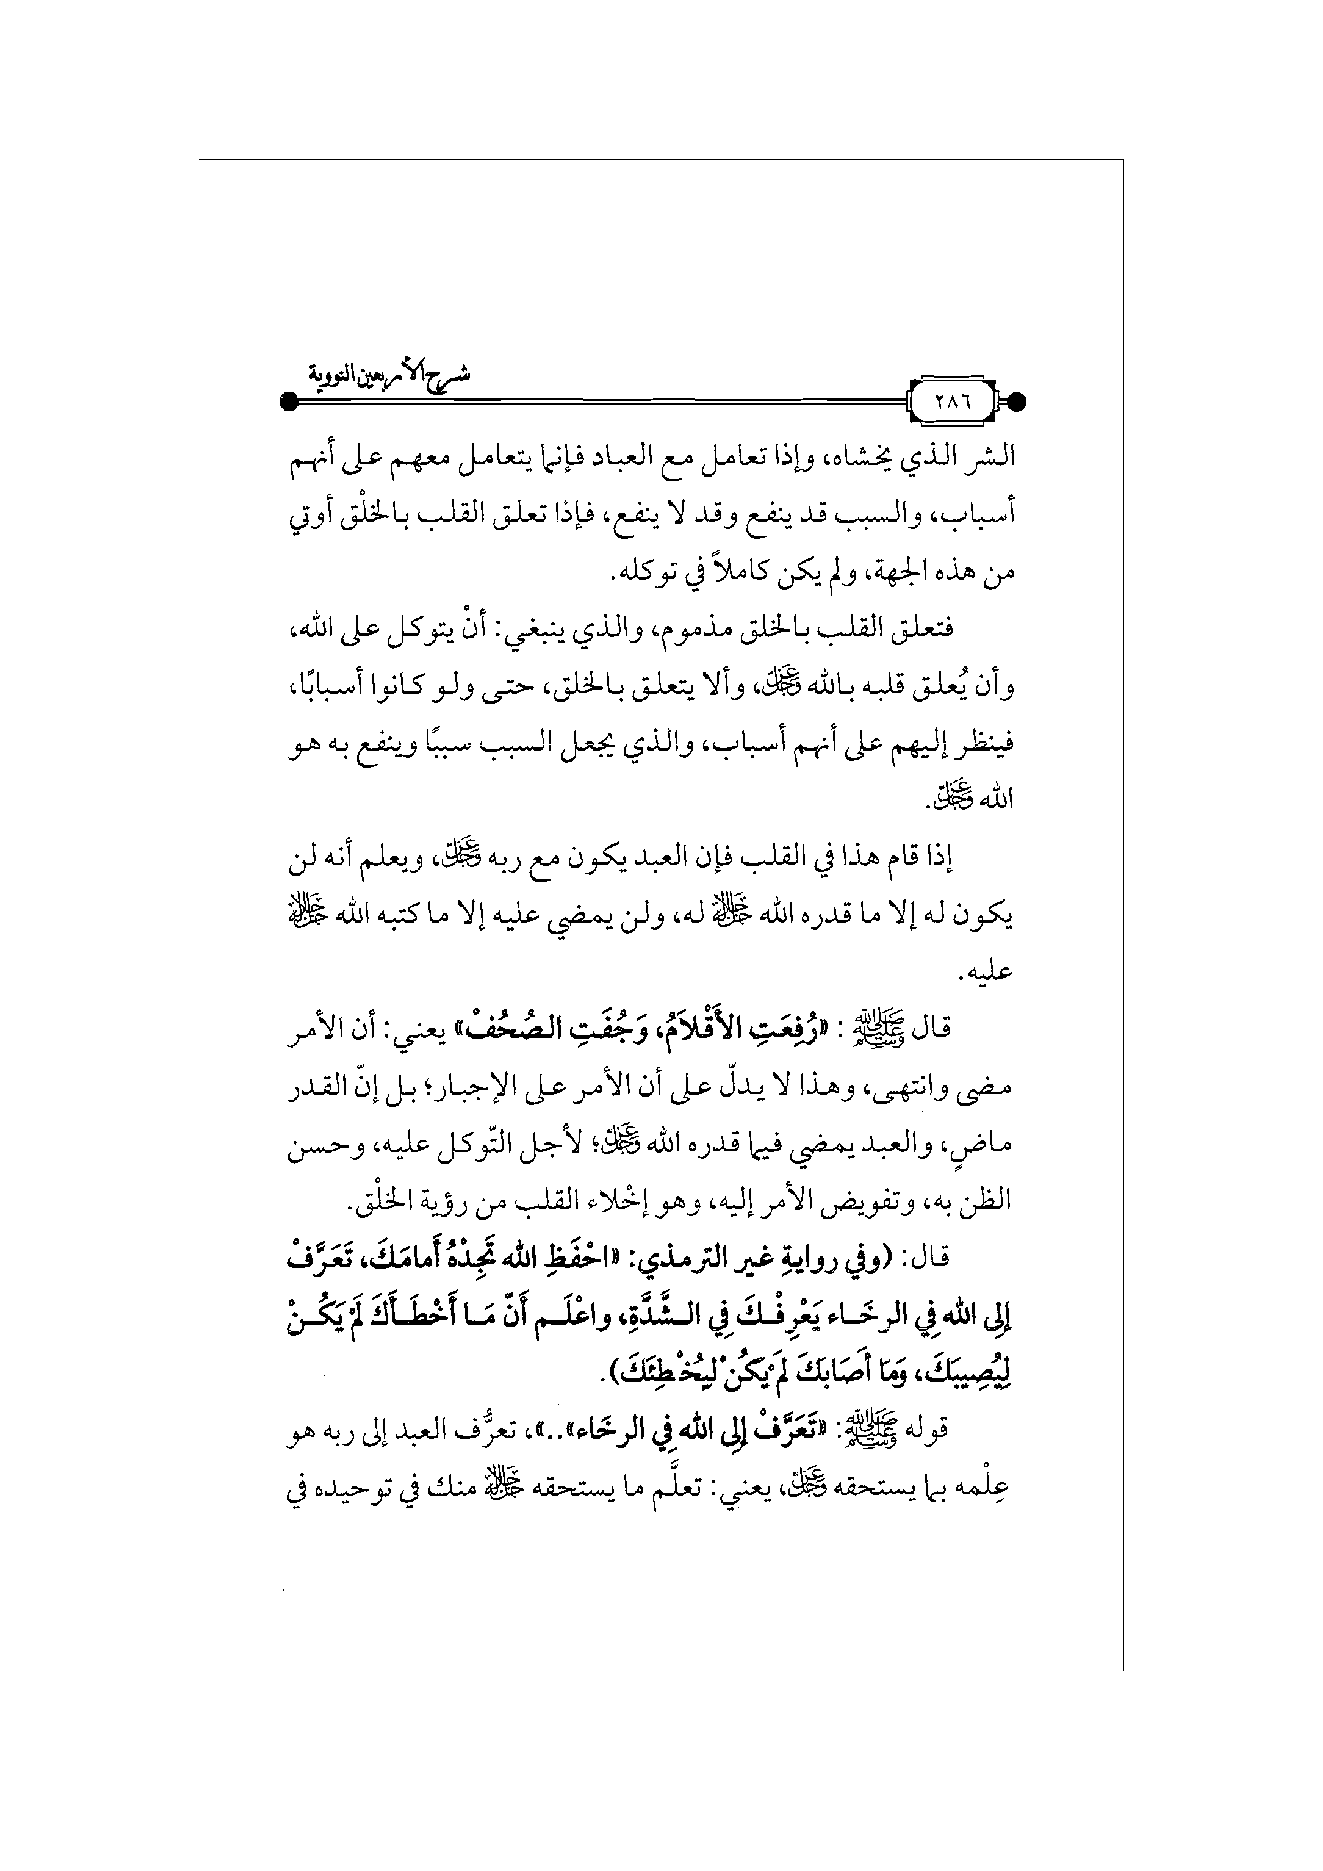 شرح الأربعين النووية
٢٨٦
الشر الذي يخشاه، وإذا تعامل مع العباد فإنما يتعامل معهم على أنهم
أسباب، والسبب قد ينفع وقد لا ينفع، فإذا تعلق القلب بالخلْق أوتي
من هذه الجهة، ولم يكن كاملاً في توكله.
فتعلق القلب بالخلق مذموم، والذي ينبغي: أنْ يتوكل على الله،
وأن يُعلق قلبه بالله عَزَّ وَجَلَّ، وألا يتعلق بالخلق، حتى ولو كانوا أسبابًا،
فينظر إليهم على أنهم أسباب، والذي يجعل السبب سببًا وينفع به هو
الله عَزَّ وَجَلَّ.
إذا قام هذا في القلب فإن العبد يكون مع ربه عَزَّ وَجَلَّ، ويعلم أنه لن
يكون له إلا ما قدره الله جَلَّ جَلَالُهُ له، ولن يمضي عليه إلا ما كتبه الله جَلَّ جَلَالُهُ
عليه.
قال ﷺ : «رُفِعَتِ الأَقْلاَمُ، وَجُفَتِ الصُحُفْ» يعني: أن الأمر
مضى وانتهى، وهذا لا يدلّ على أن الأمر على الإجبار؛ بل إنّ القدر
ماضٍ، والعبد يمضي فيما قدره الله عَزَّ وَجَلَّ؛ لأجل التّوكل عليه، وحسن
الظن به، وتفويض الأمر إليه، وهو إخْلاء القلب من رؤية الخلْق.
قال: (وفي روايةِ غير الترمذي: «احْفَظِ الله تَجِدْهُ أَمامَكَ، تَعَرَّفْ
إلى الله فِي الرخَاء يَعْرِفْكَ فِي الشَّدَّةِ، واعْلَم أَنّ مَا أَخْطَأَكَ لَمْ يَكُنْ
لِيُصِيبَكَ، وَمَا أَصَابَكَ لَمْ يَكُنْ لِيُخْطِئَكَ).
قوله ﷺ: «تَعَرَّفْ إِلى الله فِي الرخَاء»..»، تعرُّف العبد إلى ربه هو
عِلْمه بما يستحقه عَزَّ وَجَلَّ، يعني: تعلَّم ما يستحقه جَلَّ جَلَالُهُ منك في توحيده في